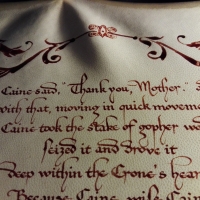 Caine said, "Thank you, Mother."
with that, moving in quick movemen
Caine took the stake of gopher wo
seized it and drove it
deep within the Crone's hear
Because Caine, wise Cain